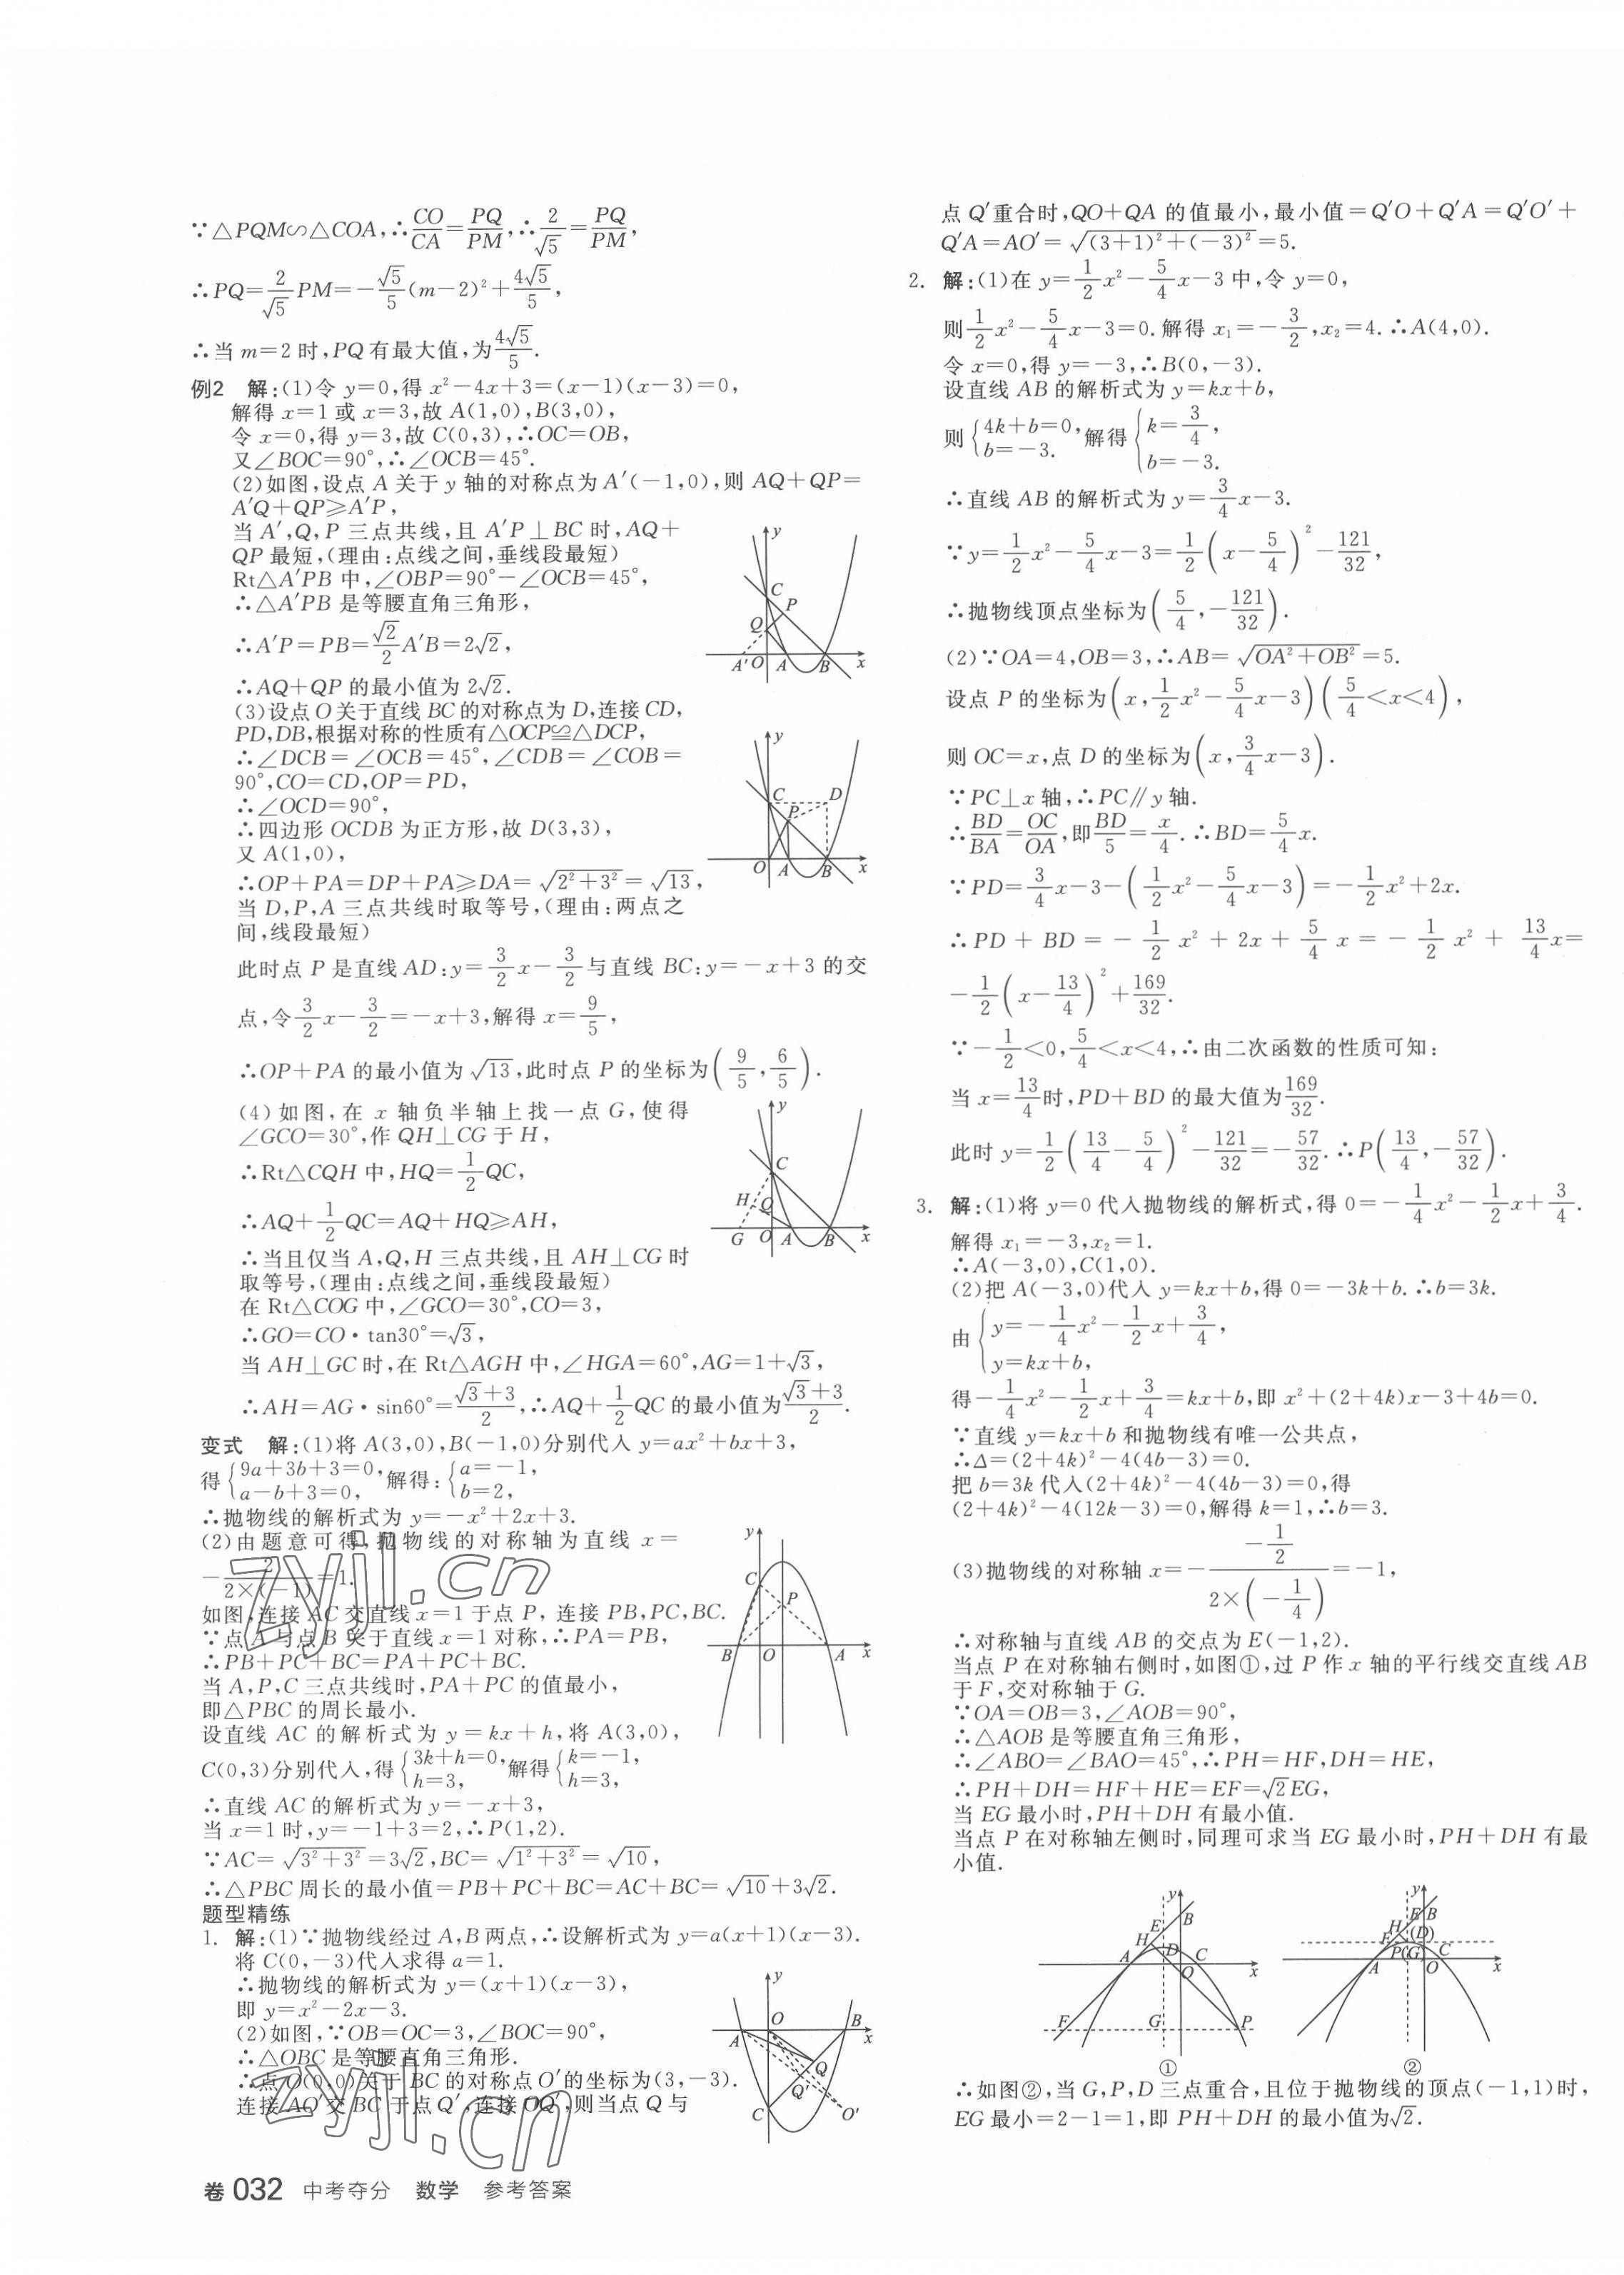 ∵△PQM∽△COA,∴CO/CA=PQ/PM,∴2/√5=PQ/PM,
∴PQ=2/√5 PM=-√5/5(m-2)²+4√5/5,
∴当 m=2 时,PQ 有最大值,为4√5/5.
例2 解:(1)令 y=0,得 x²-4x+3=(x-1)(x-3)=0,
解得 x=1 或 x=3,故 A(1,0),B(3,0),
令 x=0,得 y=3,故 C(0,3),∴OC=OB,
又∠BOC=90°,∴∠OCB=45°.
(2)如图,设点 A 关于 y 轴的对称点为 A′(-1,0),则 AQ+QP=
A′Q+QP≥A′P,
当 A′,Q,P 三点共线,且 A′P⊥BC 时,AQ+
QP 最短,(理由:点线之间,垂线段最短)
Rt△A′PB 中,∠OBP=90°-∠OCB=45°,
∴△A′PB 是等腰直角三角形,
∴A′P=PB=√2/2 A′B=2√2,
∴AQ+QP 的最小值为 2√2.
(3)设点 O 关于直线 BC 的对称点为 D,连接 CD,
PD,DB,根据对称的性质有△OCP≌△DCP,
∴∠DCB=∠OCB=45°,∠CDB=∠COB=
90°,CO=CD,OP=PD,
∴∠OCD=90°,
∴四边形 OCDB 为正方形,故 D(3,3),
又 A(1,0),
∴OP+PA=DP+PA≥DA=√(2²+3²)=√13,
当 D,P,A 三点共线时取等号,(理由:两点之
间,线段最短)
此时点 P 是直线 AD:y=3/2x-3/2与直线 BC:y=-x+3 的交
点,令3/2x-3/2=-x+3,解得 x=9/5,
∴OP+PA 的最小值为√13,此时点 P 的坐标为(9/5,6/5).
(4)如图,在 x 轴负半轴上找一点 G,使得
∠GCO=30°,作 QH⊥CG 于 H,
∴Rt△CQH 中,HQ=1/2QC,
∴AQ+1/2QC=AQ+HQ≥AH,
∴当且仅当 A,Q,H 三点共线,且 AH⊥CG 时
取等号,(理由:点线之间,垂线段最短)
在 Rt△COG 中,∠GCO=30°,CO=3,
∴GO=CO·tan30°=√3,
当 AH⊥GC 时,在 Rt△AGH 中,∠HGA=60°,AG=1+√3,
∴AH=AG·sin60°=(√3+3)/2,∴AQ+1/2QC 的最小值为(√3+3)/2.
变式 解:(1)将 A(3,0),B(-1,0)分别代入 y=ax²+bx+3,
得{9a+3b+3=0, a-b+3=0, 解得:{a=-1, b=2,
∴抛物线的解析式为 y=-x²+2x+3.
(2)由题意可得,抛物线的对称轴为直线 x=
-2/(2×(-1))=1.
如图,连接 AC 交直线 x=1 于点 P,连接 PB,PC,BC.
∵点 A 与点 B 关于直线 x=1 对称,∴PA=PB,
∴PB+PC+BC=PA+PC+BC.
当 A,P,C 三点共线时,PA+PC 的值最小,
即△PBC 的周长最小.
设直线 AC 的解析式为 y=kx+h,将 A(3,0),
C(0,3)分别代入,得{3k+h=0, h=3, 解得{k=-1, h=3,
∴直线 AC 的解析式为 y=-x+3,
当 x=1 时,y=-1+3=2,∴P(1,2).
∵AC=√(3²+3²)=3√2,BC=√(1²+3²)=√10,
∴△PBC 周长的最小值=PB+PC+BC=AC+BC=√10+3√2.
题型精练
1. 解:(1)∵抛物线经过 A,B 两点,∴设解析式为 y=a(x+1)(x-3).
将 C(0,-3)代入求得 a=1.
∴抛物线的解析式为 y=(x+1)(x-3),
即 y=x²-2x-3.
(2)如图,∵OB=OC=3,∠BOC=90°,
∴△OBC 是等腰直角三角形.
∴点 O(0,0)关于 BC 的对称点 O′的坐标为(3,-3).
连接 AO′交 BC 于点 Q′,连接 OQ′,则当点 Q 与
点 Q′重合时,QO+QA 的值最小,最小值=Q′O+Q′A=Q′O′+
Q′A=AO′=√((3+1)²+(-3)²)=5.
2. 解:(1)在 y=1/2x²-5/4x-3 中,令 y=0,
则1/2x²-5/4x-3=0.解得 x₁=-3/2,x₂=4.∴A(4,0).
令 x=0,得 y=-3,∴B(0,-3).
设直线 AB 的解析式为 y=kx+b,
则{4k+b=0, b=-3. 解得{k=3/4, b=-3.
∴直线 AB 的解析式为 y=3/4x-3.
∵y=1/2x²-5/4x-3=1/2(x-5/4)²-121/32,
∴抛物线顶点坐标为(5/4,-121/32).
(2)∵OA=4,OB=3,∴AB=√(OA²+OB²)=5.
设点 P 的坐标为(x,1/2x²-5/4x-3)(5/4<x<4),
则 OC=x,点 D 的坐标为(x,3/4x-3).
∵PC⊥x 轴,∴PC∥y 轴.
∴BD/BA=OC/OA,即BD/5=x/4.∴BD=5/4x.
∵PD=3/4x-3-(1/2x²-5/4x-3)=-1/2x²+2x.
∴PD+BD=-1/2x²+2x+5/4x=-1/2x²+13/4x=
-1/2(x-13/4)²+169/32.
∵-1/2<0,5/4<x<4,∴由二次函数的性质可知:
当 x=13/4时,PD+BD 的最大值为169/32.
此时 y=1/2(13/4-5/4)²-121/32=-57/32.∴P(13/4,-57/32).
3. 解:(1)将 y=0 代入抛物线的解析式,得 0=-1/4x²-1/2x+3/4.
解得 x₁=-3,x₂=1.
∴A(-3,0),C(1,0).
(2)把 A(-3,0)代入 y=kx+b,得 0=-3k+b.∴b=3k.
由{y=-1/4x²-1/2x+3/4, y=kx+b,
得-1/4x²-1/2x+3/4=kx+b,即 x²+(2+4k)x-3+4b=0.
∵直线 y=kx+b 和抛物线有唯一公共点,
∴Δ=(2+4k)²-4(4b-3)=0.
把 b=3k 代入(2+4k)²-4(4b-3)=0,得
(2+4k)²-4(12k-3)=0,解得 k=1,∴b=3.
(3)抛物线的对称轴 x=-(-1/2)/(2×(-1/4))=-1,
∴对称轴与直线 AB 的交点为 E(-1,2).
当点 P 在对称轴右侧时,如图①,过 P 作 x 轴的平行线交直线 AB
于 F,交对称轴于 G.
∵OA=OB=3,∠AOB=90°,
∴△AOB 是等腰直角三角形,
∴∠ABO=∠BAO=45°,∴PH=HF,DH=HE,
∴PH+DH=HF+HE=EF=√2EG,
当 EG 最小时,PH+DH 有最小值.
当点 P 在对称轴左侧时,同理可求当 EG 最小时,PH+DH 有最
小值.
①
②
∴如图②,当 G,P,D 三点重合,且位于抛物线的顶点(-1,1)时,
EG 最小=2-1=1,即 PH+DH 的最小值为√2.
卷 032 中考夺分 数学 参考答案
zyjl.cn
zyjl.cn